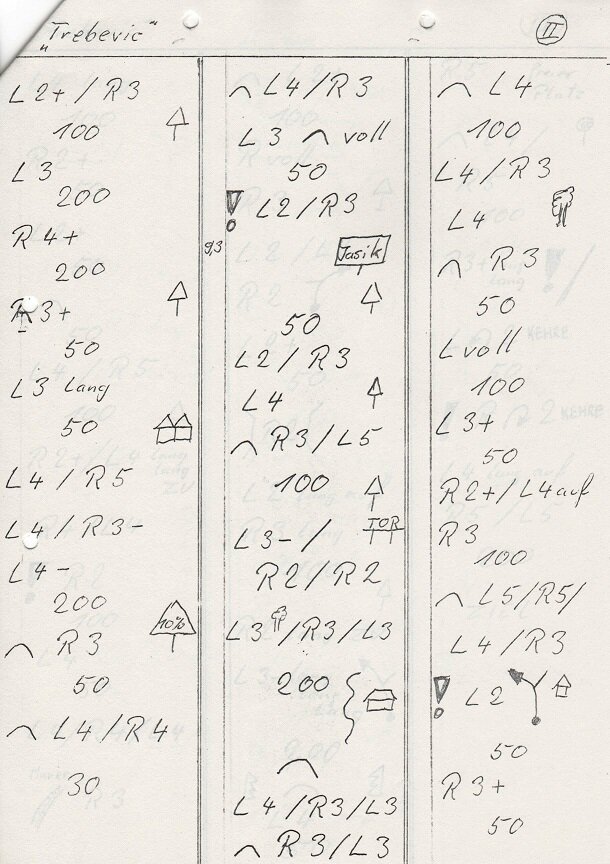 „Trebevic“
II
L 2+ / R 3
100
L 3
200
R 4+
200
R 3+
50
L 3 lang
50
L 4 / R 5
L 4 / R 3-
L 4 -
200
10%
⌒ R 3
50
⌒ L 4 / R 4
30
⌒ L 4 / R 3
L 3 ⌒ voll
50
! L 2 / R 3
9,3
Jasik
50
L 2 / R 3
L 4
⌒ R 3 / L 5
100
TOR
L 3- /
R 2 / R 2
L 3 / R 3 / L 3
200
⌒
L 4 / R 3 / L 3
⌒ R 3 / L 3
⌒ L 4
100
L 4 / R 3
L 4
⌒ R 3
50
L voll
100
L 3+
50
R 2+ / L 4 auf
R 3
100
⌒ L 5 / R 5 /
L 4 / R 3
! L 2
50
R 3+
50